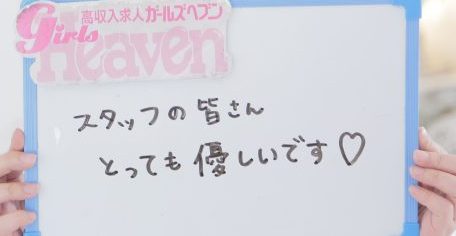 高収入求人ガールズヘブン
Girls
Heaven
スタッフの皆さん
とっても優しいです♡